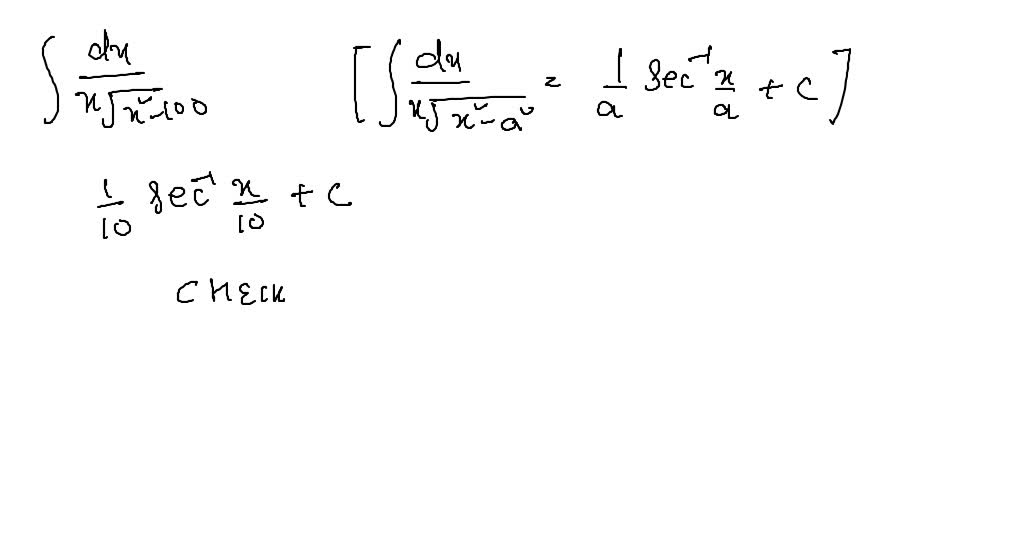 ∫ dx / x√(x² - 100) [ ∫ dx / x√(x² - a²) = 1/a sec⁻¹ x/a + c ]
1/10 sec⁻¹ x/10 + c
CHECK